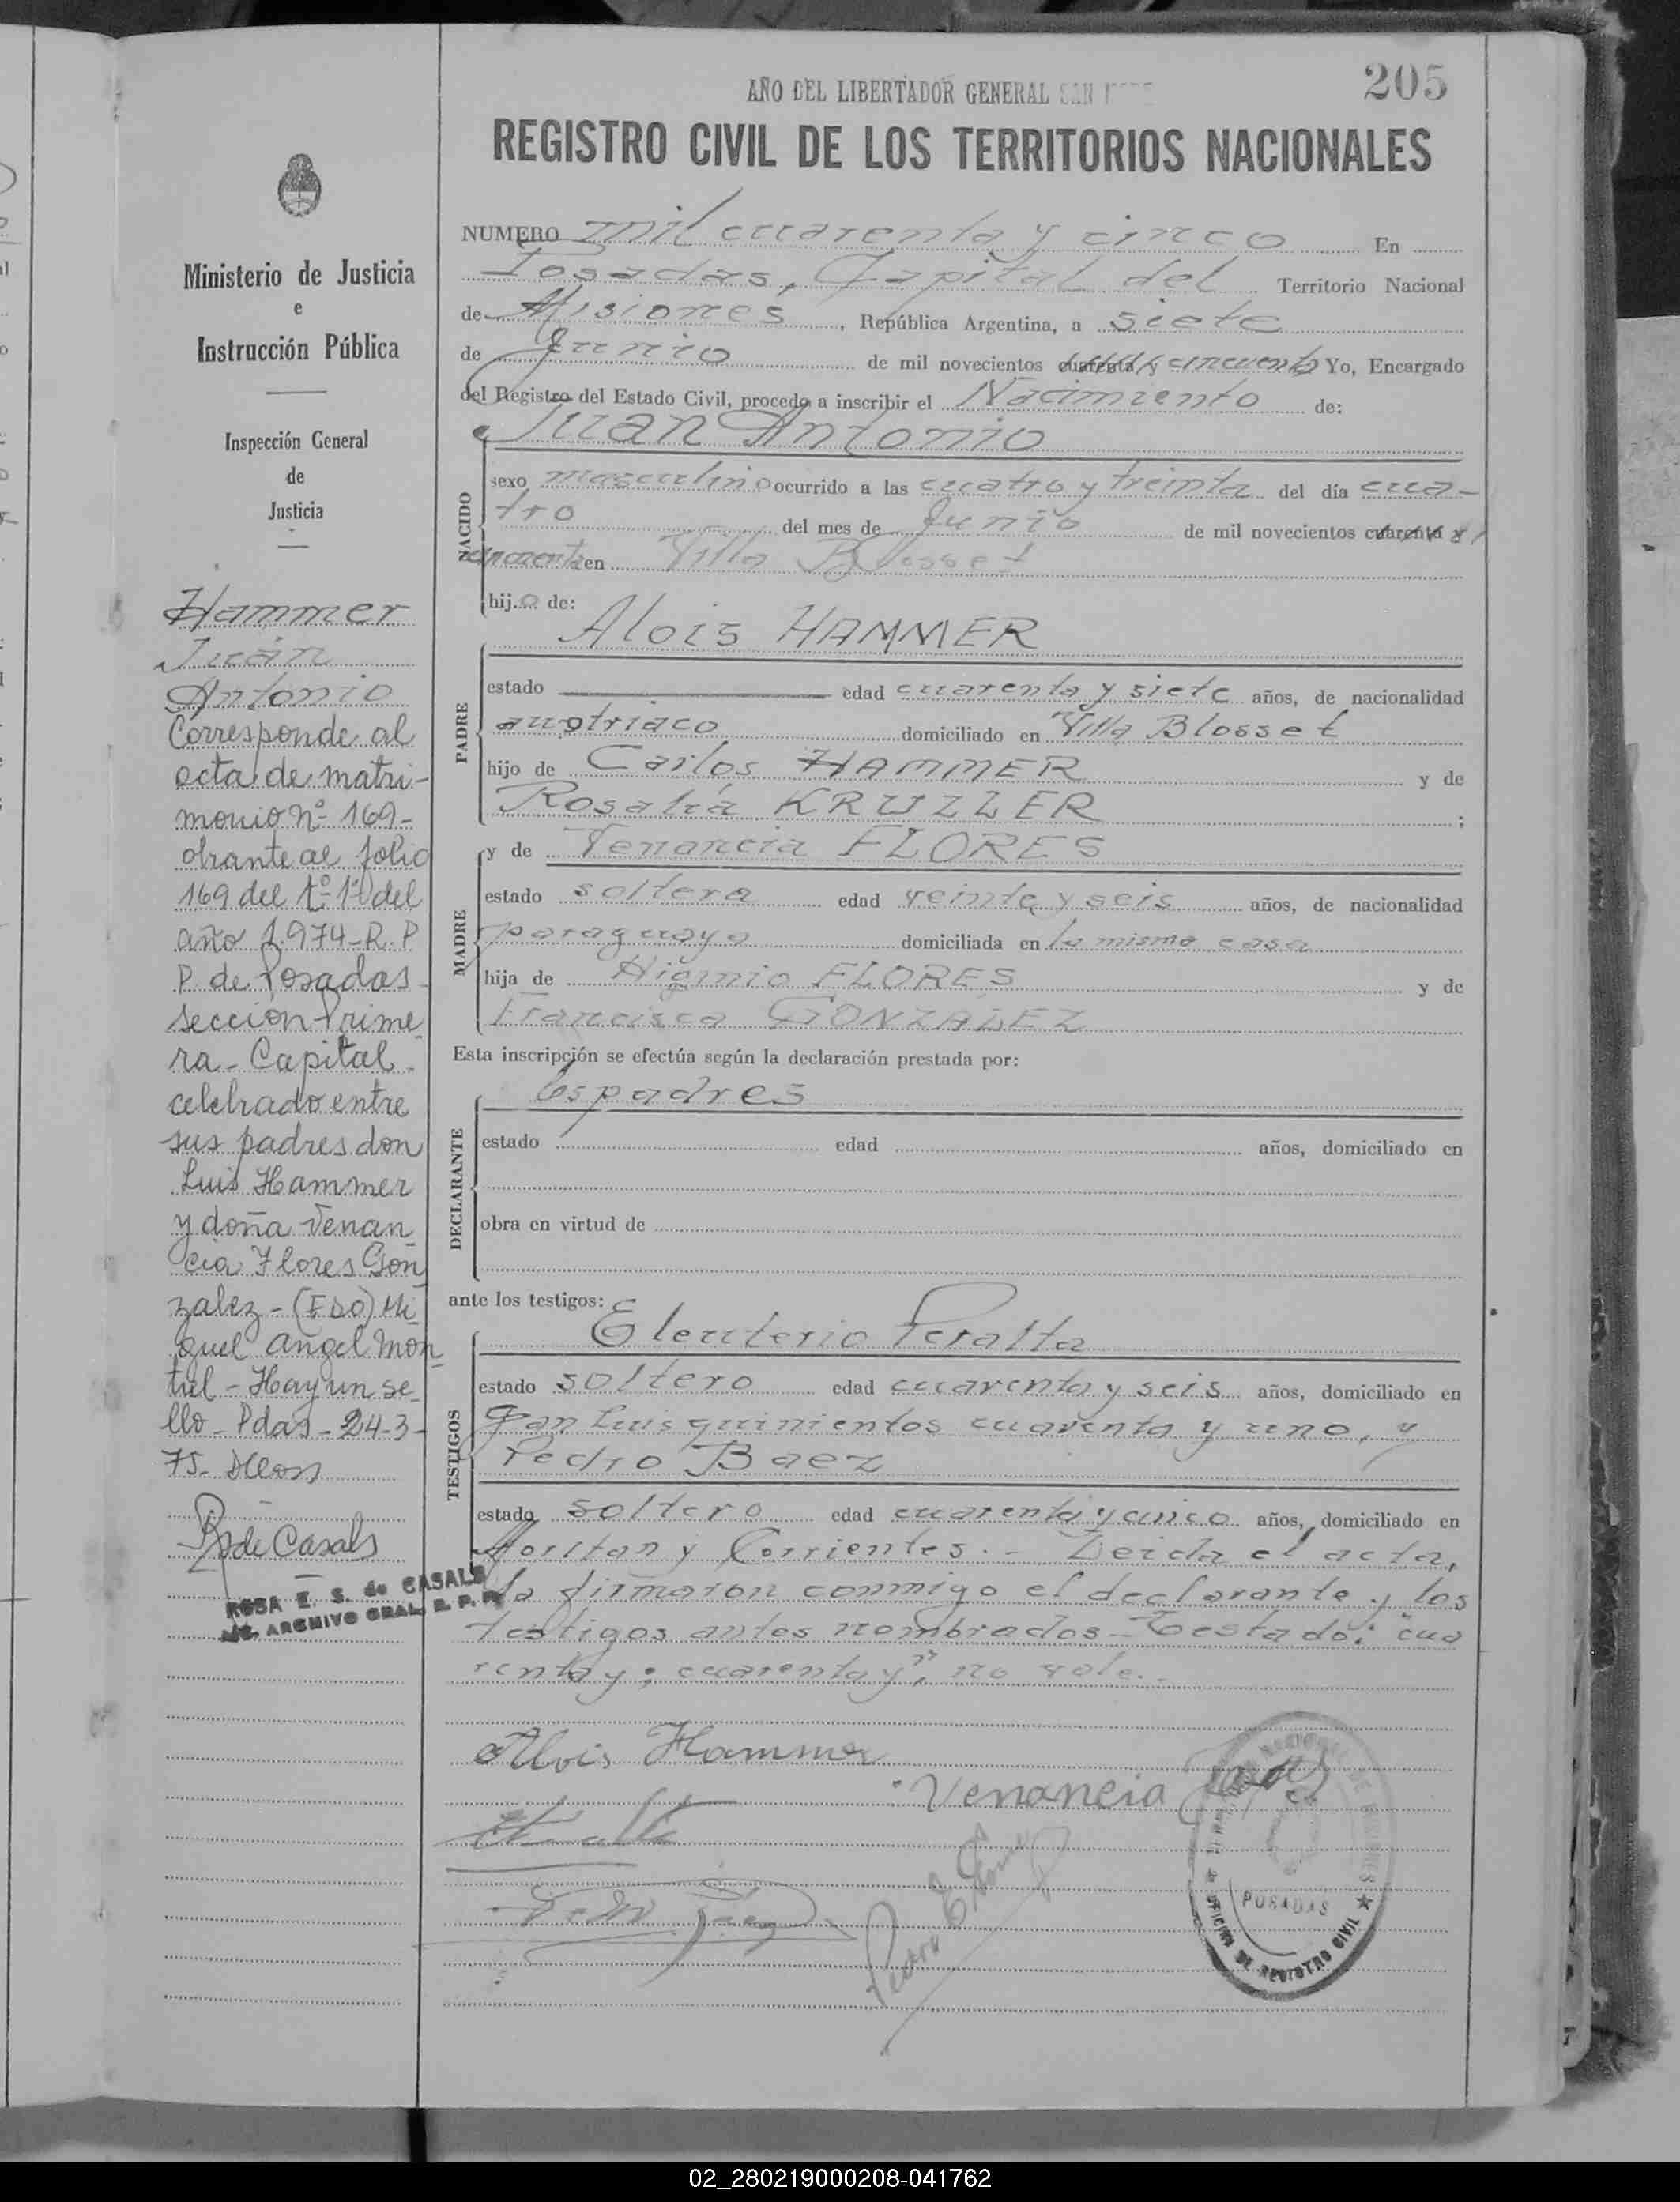 205
AÑO DEL LIBERTADOR GENERAL SAN
REGISTRO CIVIL DE LOS TERRITORIOS NACIONALES
Ministerio de Justicia
e
Instrucción Pública
Inspección General
de
Justicia
Hammer
Juan
Antonio
Corresponde al
acta de matri-
monio nº 169-
obrante al folio
169 del tº 1º del
año 1974-R.P
P. de Posadas
sección Prime
ra - Capital -
celebrado entre
sus padres don
Luis Hammer
y doña Venan
cia Flores Gon
zalez - (FDO) Mi
guel Angel Mon
tiel - Hay un se
llo - Pdas - 24-3-
75-
de Casals
ROSA E. S. de CASALS
ARCHIVO GRAL. R. P. P.
NUMERO mil cuarenta y cinco En
Posadas, Capital del Territorio Nacional
de Misiones, República Argentina, a siete
de Junio de mil novecientos cuarenta y cincuenta Yo, Encargado
del Registro del Estado Civil, procedo a inscribir el Nacimiento de:
Juan Antonio
NACIDO
sexo masculino ocurrido a las cuatro y treinta del día cua-
tro del mes de Junio de mil novecientos cuarenta y
cincuenta en Villa Blosset
hijo de:
Alois HAMMER
PADRE
estado edad cuarenta y siete años, de nacionalidad
austriaco domiciliado en Villa Blosset
hijo de Carlos HAMMER y de
Rosalia KRULLER;
y de Venancia FLORES
MADRE
estado soltera edad veinte y seis años, de nacionalidad
paraguaya domiciliada en la misma casa
hija de Higinio FLORES y de
Francisca GONZALEZ
Esta inscripción se efectúa según la declaración prestada por:
los padres
DECLARANTE
estado edad años, domiciliado en
obra en virtud de
ante los testigos:
Eleuterio Peralta
TESTIGOS
estado soltero edad cuarenta y seis años, domiciliado en
San Luis quinientos cuarenta y uno, y
Pedro Baez
estado soltero edad cuarenta y cinco años, domiciliado en
y Corrientes. - Leida el acta,
la firmaron conmigo el declarante y los
testigos antes nombrados - Testado: "cua
renta y; cuarenta y", no vale. -
Alois Hammer
Venancia
Pedro Baez
Pedro
POSADAS
OFICINA DE REGISTRO CIVIL
02_280219000208-041762